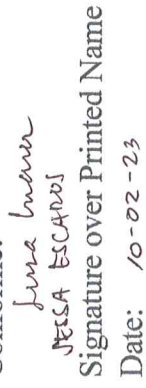 JESSA ESCAROS
Signature over Printed Name
Date: 10-02-23